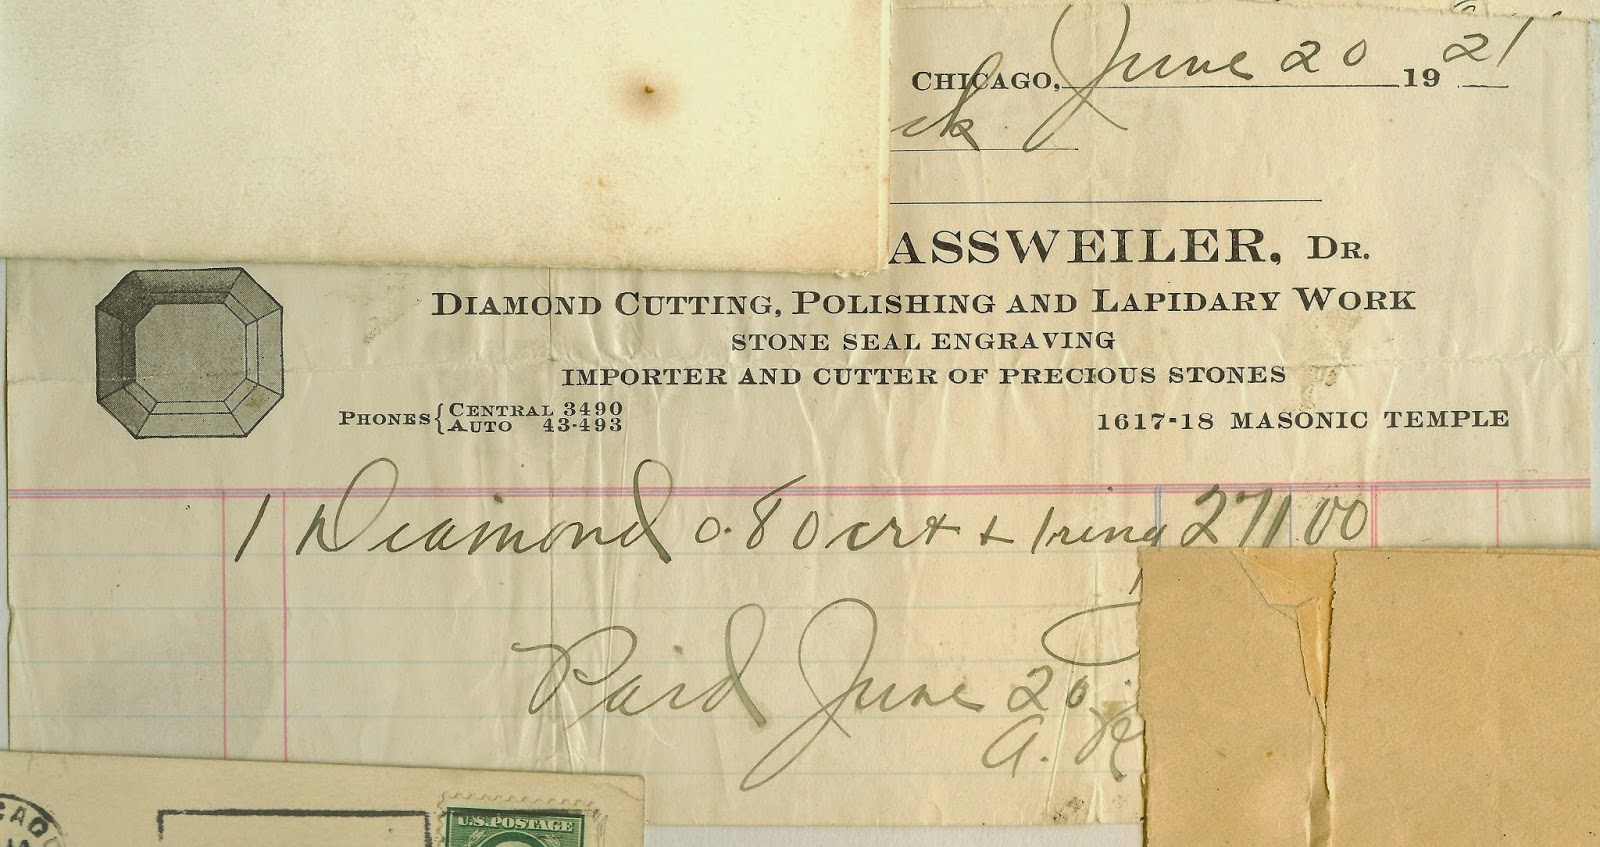 CHICAGO, June 20 1921
ck
ASSWEILER, DR.
DIAMOND CUTTING, POLISHING AND LAPIDARY WORK
STONE SEAL ENGRAVING
IMPORTER AND CUTTER OF PRECIOUS STONES
PHONES { CENTRAL 3490
AUTO 43-493
1617-18 MASONIC TEMPLE
1 Diamond 0.80 crt + 1 ring 271.00
Paid June 20
a.
U.S. POSTAGE